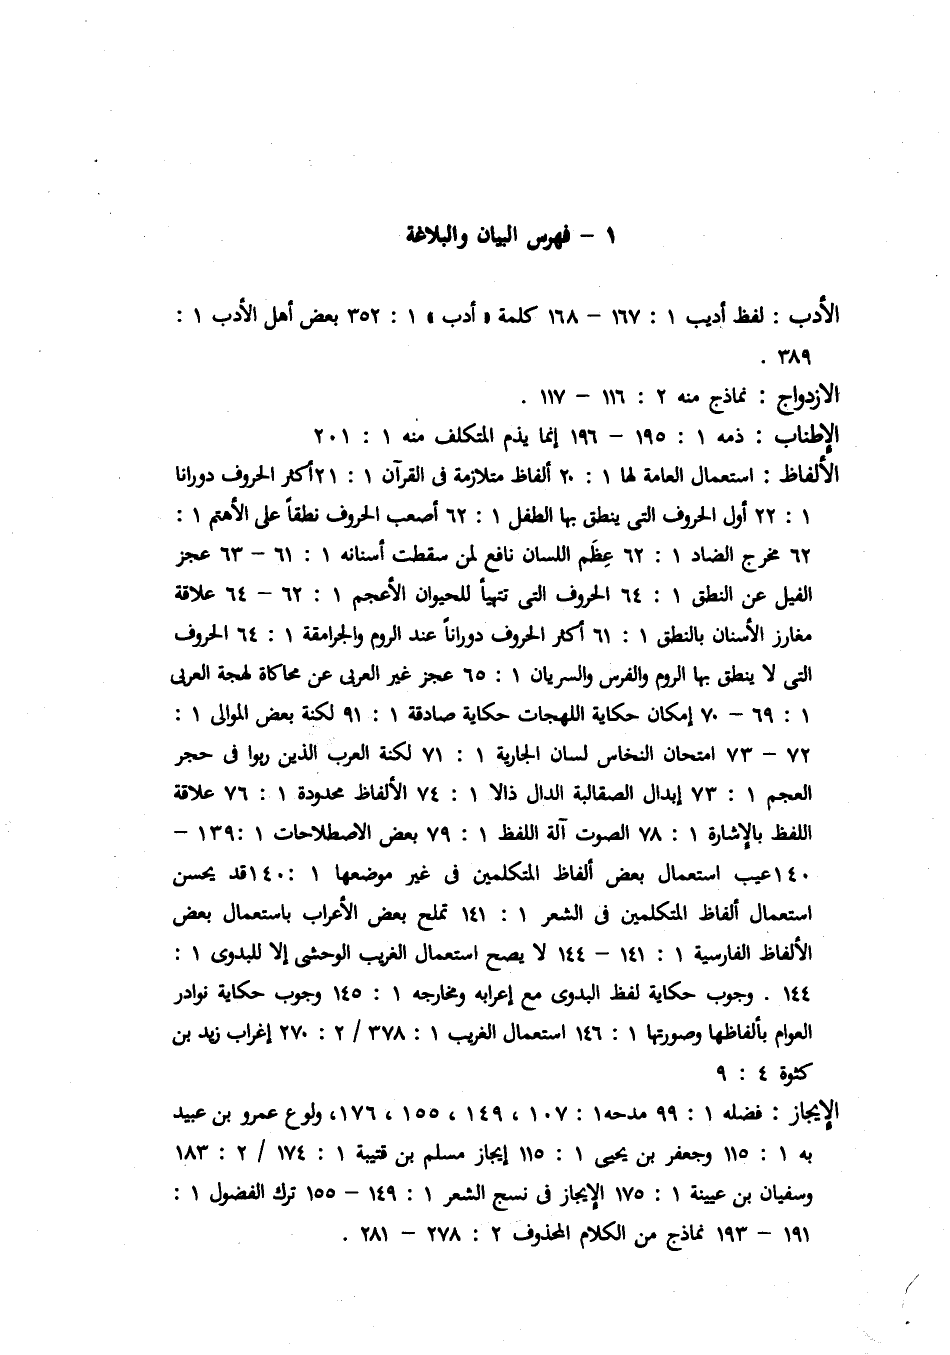 ١ – فهرس البيان والبلاغة
الأدب : لفظ أديب ١ : ١٦٧ – ١٦٨ كلمة « أدب » ١ : ٣٥٢ بعض أهل الأدب ١ :
٣٨٩ .
الازدواج : نماذج منه ٢ : ١١٦ – ١١٧ .
الإطناب : ذمه ١ : ١٩٥ – ١٩٦ إنما يذم المتكلف منه ١ : ٢٠١
الألفاظ : استعمال العامة لها ١ : ٢٠ ألفاظ متلازمة فى القرآن ١ : ٢١أكثر الحروف دورانا
١ : ٢٢ أول الحروف التى ينطق بها الطفل ١ : ٦٢ أصعب الحروف نطقاً على الأهتم ١ :
٦٢ مخرج الضاد ١ : ٦٢ عِظَم اللسان نافع لمن سقطت أسنانه ١ : ٦١ – ٦٣ عجز
الفيل عن النطق ١ : ٦٤ الحروف التى تتهيأ للحيوان الأعجم ١ : ٦٢ – ٦٤ علاقة
مغارز الأسنان بالنطق ١ : ٦١ أكثر الحروف دوراناً عند الروم والجرامقة ١ : ٦٤ الحروف
التى لا ينطق بها الروم والفرس والسريان ١ : ٦٥ عجز غير العربى عن محاكاة لهجة العربى
١ : ٦٩ – ٧٠ إمكان حكاية اللهجات حكاية صادقة ١ : ٩١ لكنة بعض الموالى ١ :
٧٢ – ٧٣ امتحان النخاس لسان الجارية ١ : ٧١ لكنة العرب الذين ربوا فى حجر
العجم ١ : ٧٣ إبدال الصقالبة الدال ذالا ١ : ٧٤ الألفاظ محدودة ١ : ٧٦ علاقة
اللفظ بالإشارة ١ : ٧٨ الصوت آلة اللفظ ١ : ٧٩ بعض الاصطلاحات ١ :١٣٩ –
١٤٠عيب استعمال بعض ألفاظ المتكلمين فى غير موضعها ١ :١٤٠قد يحسن
استعمال ألفاظ المتكلمين فى الشعر ١ : ١٤١ تملح بعض الأعراب باستعمال بعض
الألفاظ الفارسية ١ : ١٤١ – ١٤٤ لا يصح استعمال الغريب الوحشى إلا للبدوى ١ :
١٤٤ . وجوب حكاية لفظ البدوى مع إعرابه ومخارجه ١ : ١٤٥ وجوب حكاية نوادر
العوام بألفاظها وصورتها ١ : ١٤٦ استعمال الغريب ١ : ٣٧٨ / ٢ : ٢٧٠ إغراب زيد بن
كثوة ٤ : ٩
الإيجاز : فضله ١ : ٩٩ مدحه١ : ١٠٧ ، ١٤٩ ، ١٥٥ ، ١٧٦، ولوع عمرو بن عبيد
به ١ : ١١٥ وجعفر بن يحيى ١ : ١١٥ إيجاز مسلم بن قتيبة ١ : ١٧٤ / ٢ : ١٨٣
وسفيان بن عيينة ١ : ١٧٥ الإيجاز فى نسج الشعر ١ : ١٤٩ – ١٥٥ ترك الفضول ١ :
١٩١ – ١٩٣ نماذج من الكلام المحذوف ٢ : ٢٧٨ – ٢٨١ .